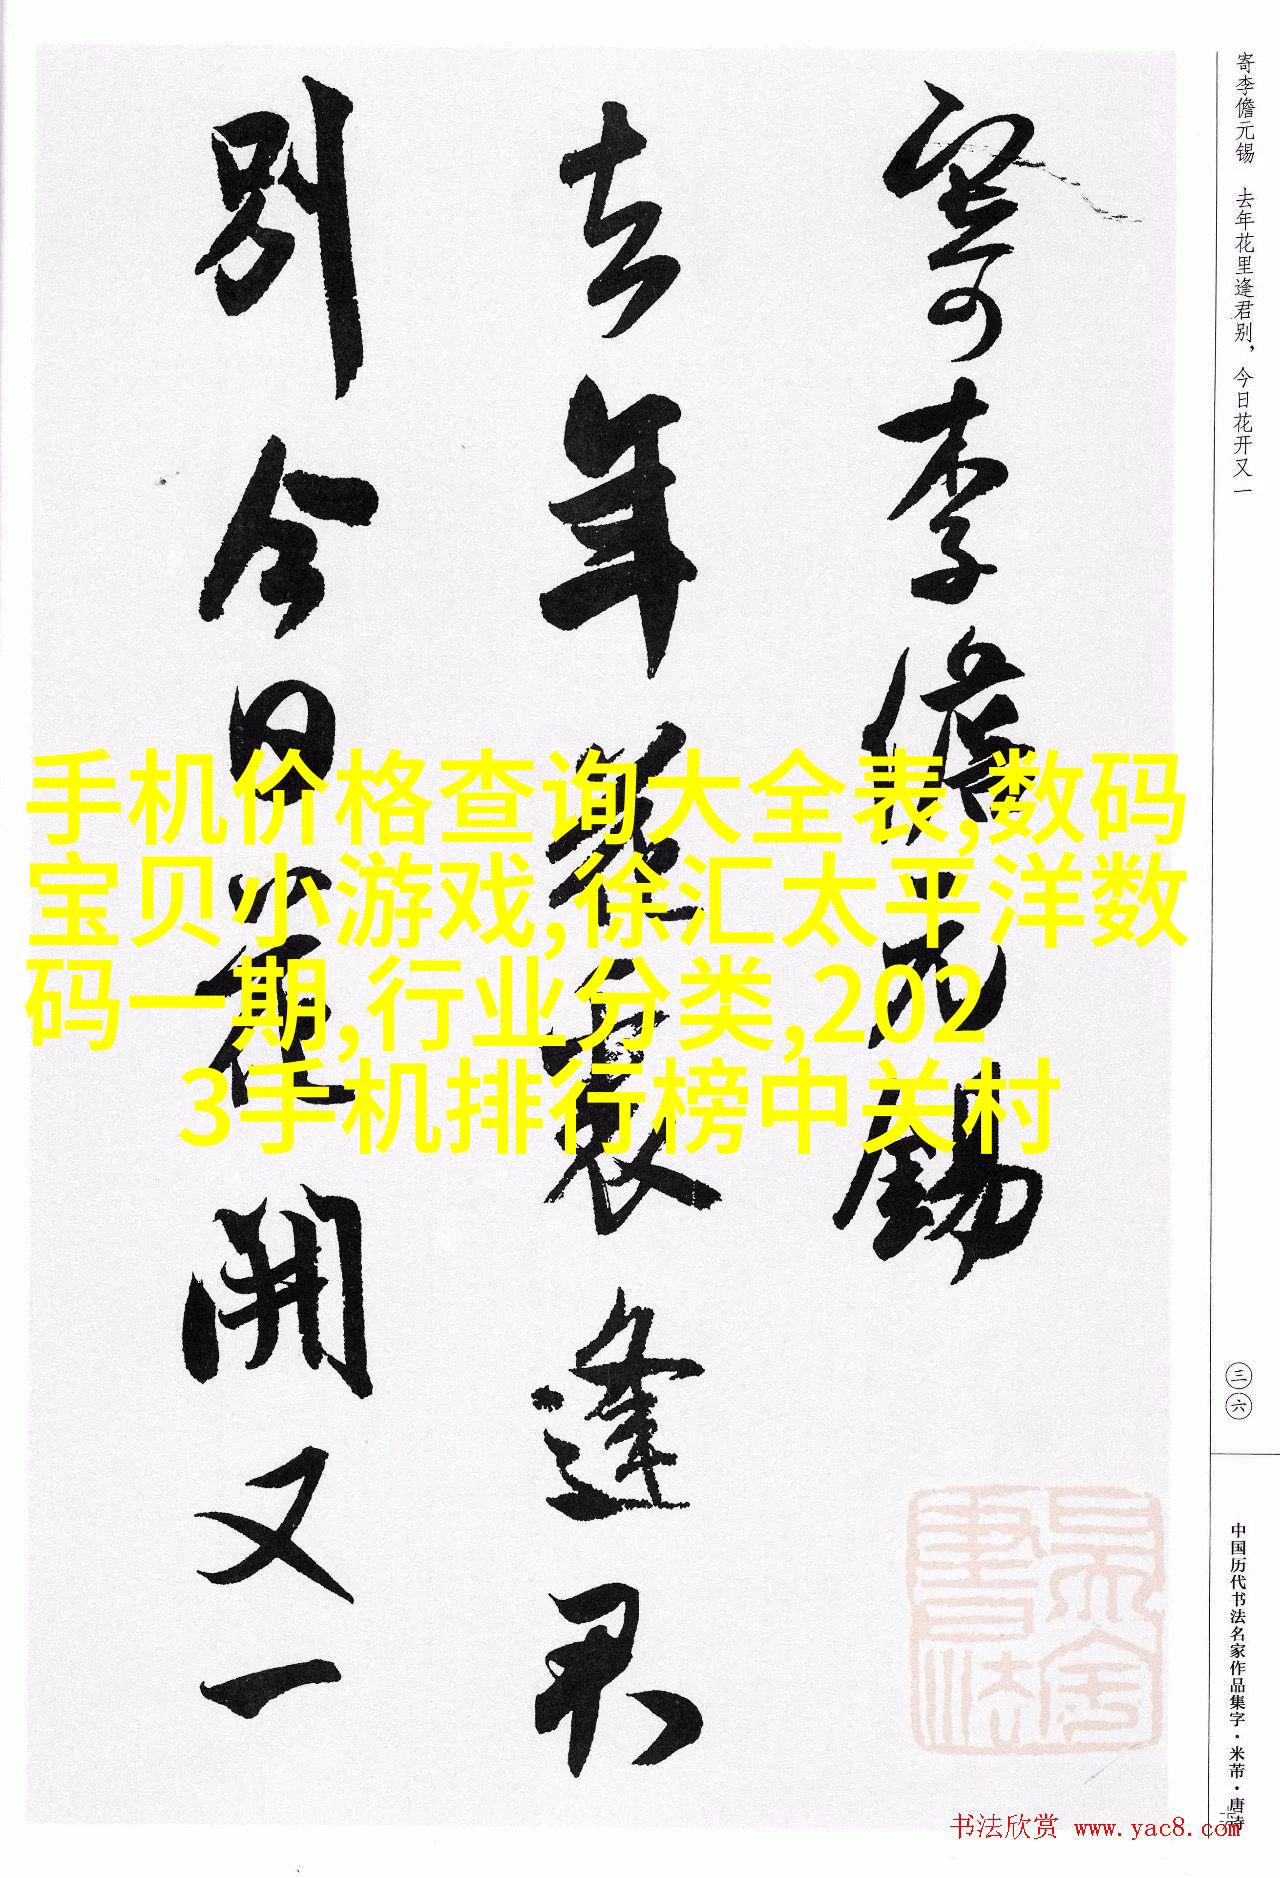 寄李儋元锡　去年花里逢君别，今日花开又一
寄李儋元錫
去年花裏逢君
別今日花開又一
手机价格查询大全表,数码
宝贝小游戏,徐汇太平洋数
码一期,行业分类,202
3手机排行榜中关村
三六
中国历代书法名家作品集字·米芾·唐诗
书法欣赏 www.yac8.com